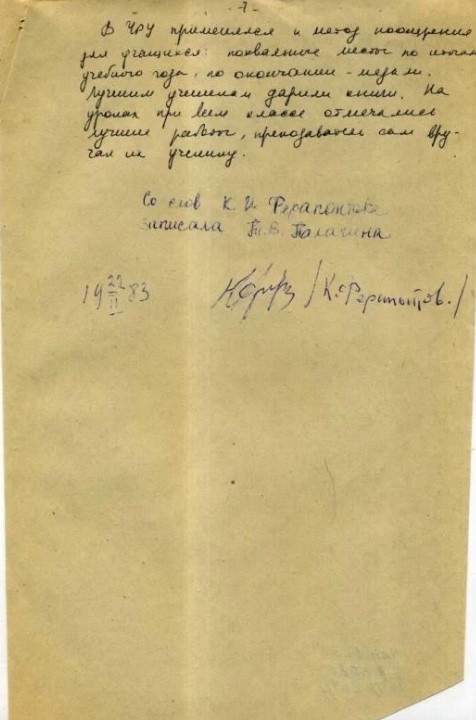 - 7 -
В ЧРУ применялся и метод поощрения
для учащихся: похвальные листы по итогам
учебного года, по окончании - медали.
Лучшим ученикам дарили книги. На
уроках при всем классе отмечались
лучшие работы, преподаватель сам вру-
чал их ученику.
Со слов К. И. Ферапонтова
записала Т. В. Палагина
19 22/II 83
/К. Ферапонтов./